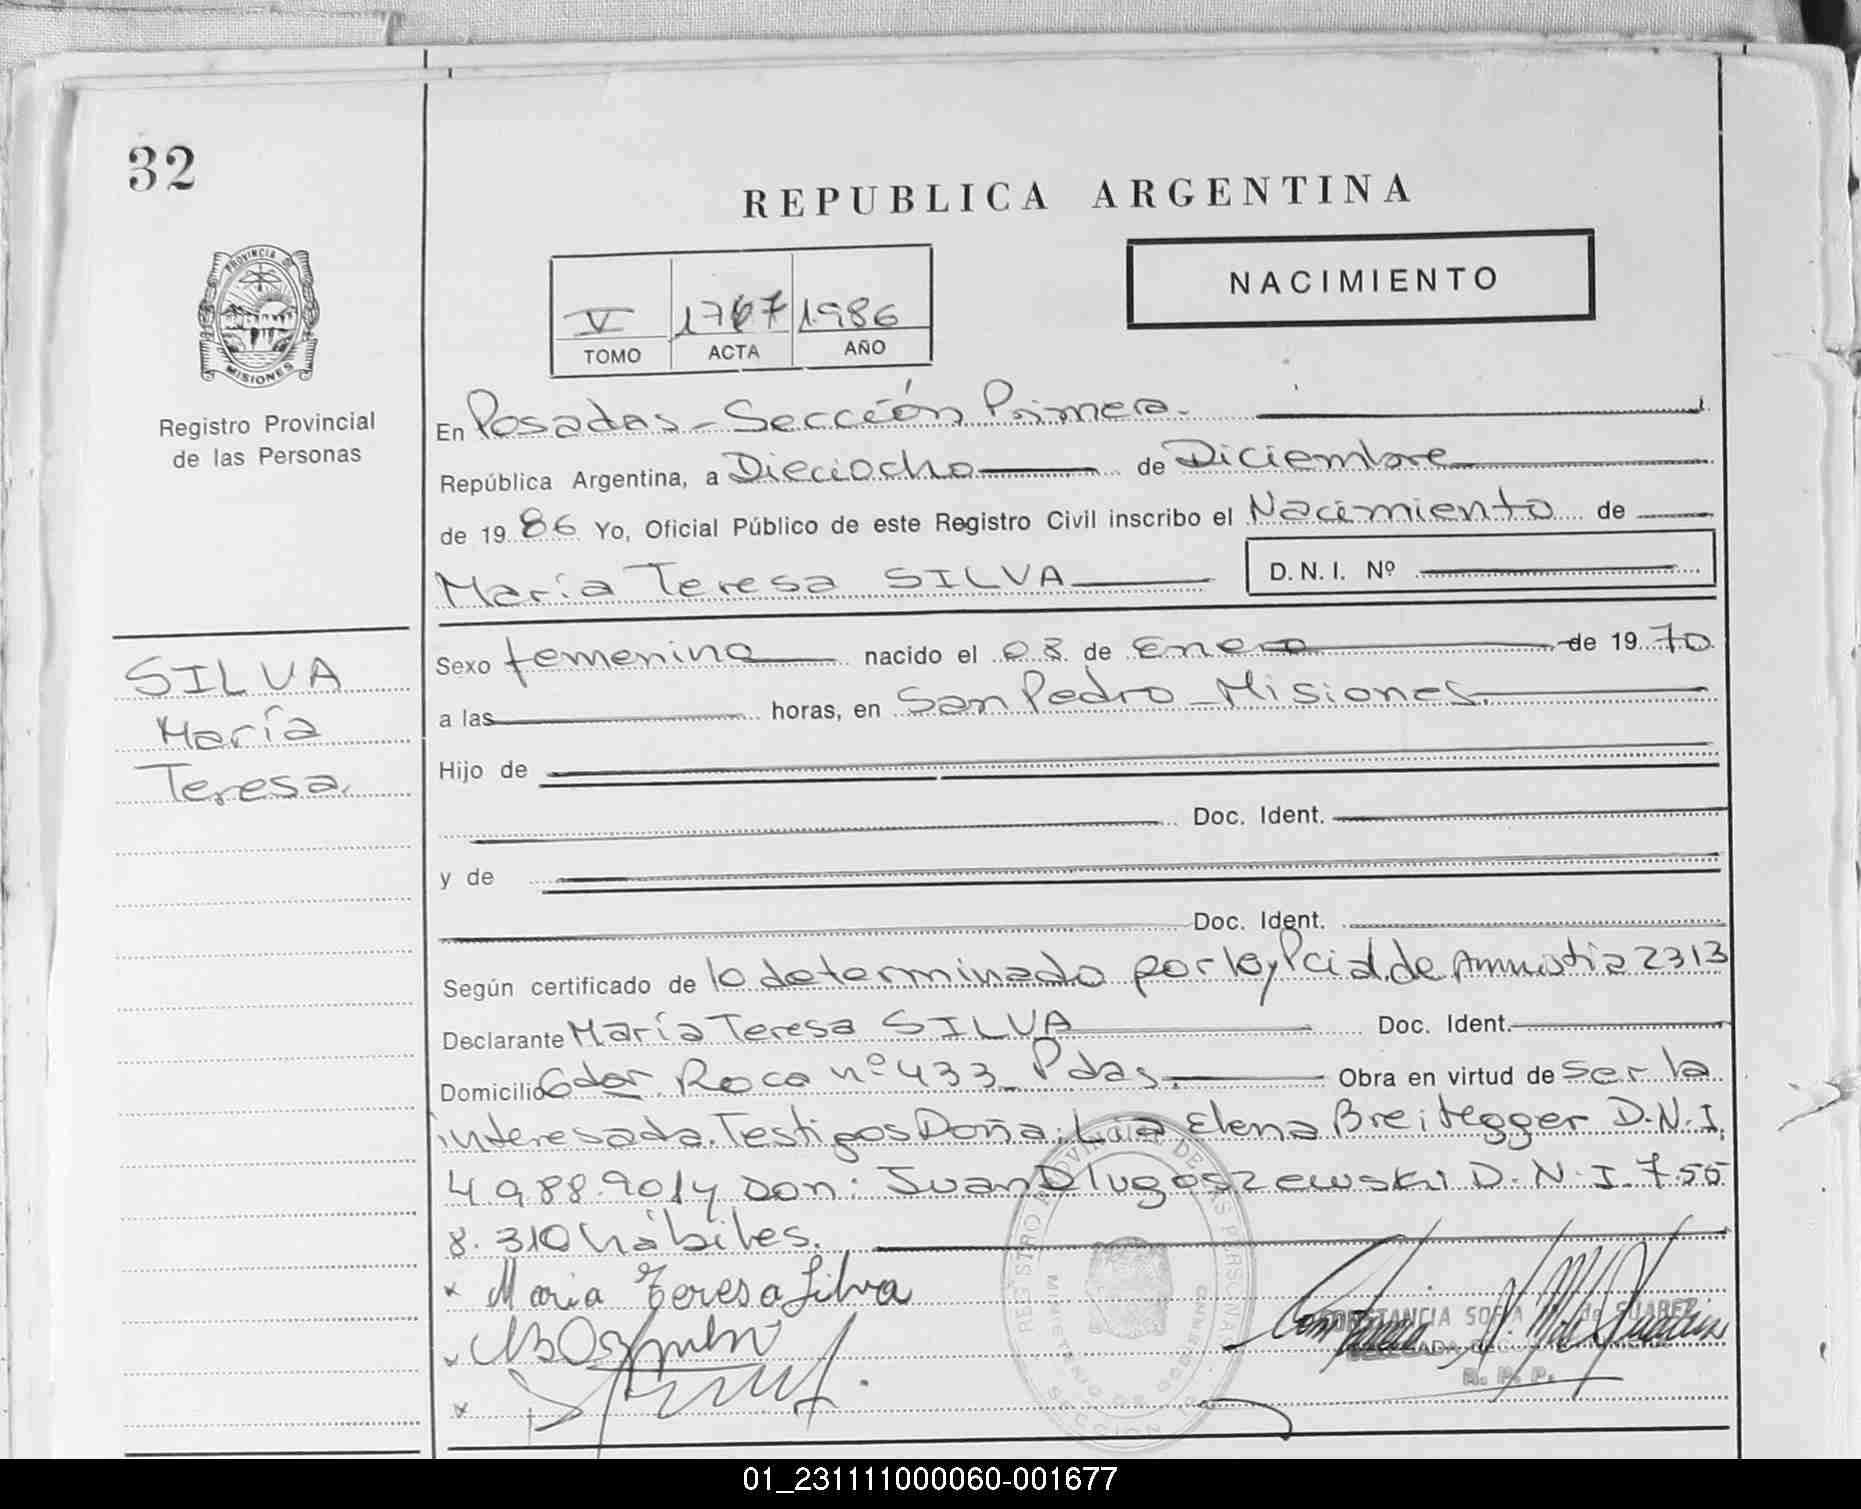 32
REPUBLICA ARGENTINA
NACIMIENTO
V 1767 1986
TOMO ACTA AÑO
PROVINCIA DE
MISIONES
Registro Provincial
de las Personas
En Posadas - Sección Primera.
República Argentina, a Dieciocho de Diciembre
de 19 86 Yo, Oficial Público de este Registro Civil inscribo el Nacimiento de
María Teresa SILVA D.N.I. Nº
SILVA
María
Teresa.
Sexo femenino nacido el 03 de Enero de 19 70
a las horas, en San Pedro - Misiones.
Hijo de
Doc. Ident.
y de
Doc. Ident.
Según certificado de lo determinado por ley Pcial. de Amnistia 2313
Declarante María Teresa SILVA Doc. Ident.
Domicilio Gdor Roca nº 433 Pdas. Obra en virtud de ser la
interesada. Testigos Doña: Elena Breitegger D.N.I.
4.988.901 y Don: Juan Dlugoszewski D.N.I. 7.55
8.310 hábiles.
x Maria Teresa Silva
x
REGISTRO PROVINCIAL DE LAS PERSONAS
MINISTERIO DE GOBIERNO
SECCION 1a
CONSTANCIA SOFIA de SUAREZ
DELEGADA
R. P. P.
01_231111000060-001677